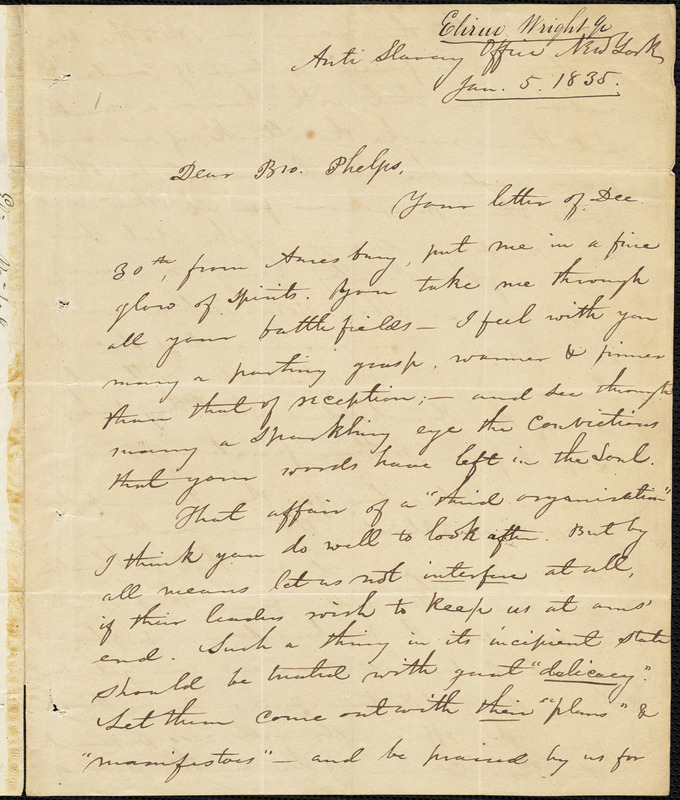 Elizur Wright Jr
Anti Slavery Office New York
Jan. 5. 1835.
Dear Bro. Phelps,
Your letter of Dec.
30th, from Amesbury, put me in a fine
glow of spirits. You take me through
all your battlefields — I feel with you
many a parting grasp, warmer & firmer
than that of reception; — and see through
many a sparkling eye the convictions
that your words have left in the Soul.
That affair of a "third organisation"
I think you do well to look after. But by
all means let us not interfere at all,
if their leaders wish to keep us at arms'
end. Such a thing in its incipient state
should be treated with great "delicacy".
Let them come out with their "plans" &
"manifestoes" — and be praised by us for